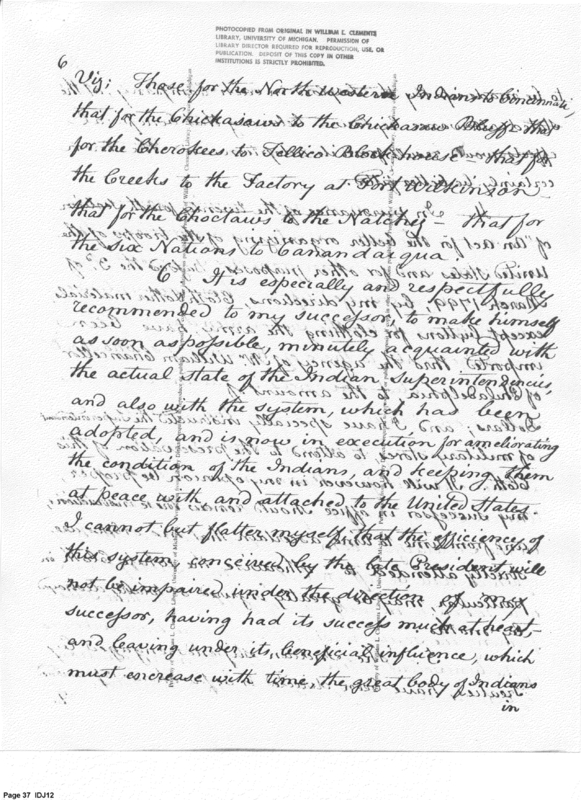 PHOTOCOPIED FROM ORIGINAL IN WILLIAM L. CLEMENTS
LIBRARY, UNIVERSITY OF MICHIGAN. PERMISSION OF
LIBRARY DIRECTOR REQUIRED FOR REPRODUCTION, USE, OR
PUBLICATION. DEPOSIT OF THIS COPY IN OTHER
INSTITUTIONS IS STRICTLY PROHIBITED.
6
Viz; Those for the North western Indians to Cincinnati,
that for the Chickasaws to the Chickasaw Bluffs that
for the Cherokees to Tellico Blockhouse that for
the Creeks to the Factory at Fort Wilkinson
that for the Choctaws to the Natchez – that for
the Six Nations to Canandaiqua.
6 It is especially and respectfully
recommended to my successor, to make himself
as soon as possible, minutely acquainted with
the actual state of the Indian Superintendencies,
and also with the system, which had been
adopted, and is now in execution for ameliorating
the condition of the Indians, and keeping them
at peace with and attached to the United States.
I cannot but flatter myself that the efficiency of
this system conceived by the late President will
not be impaired under the direction of my
successor, having had its success much at heart –
and leaving under its beneficial influence, which
must encrease with time, the great body of Indians
in
Page 37 IDJ12